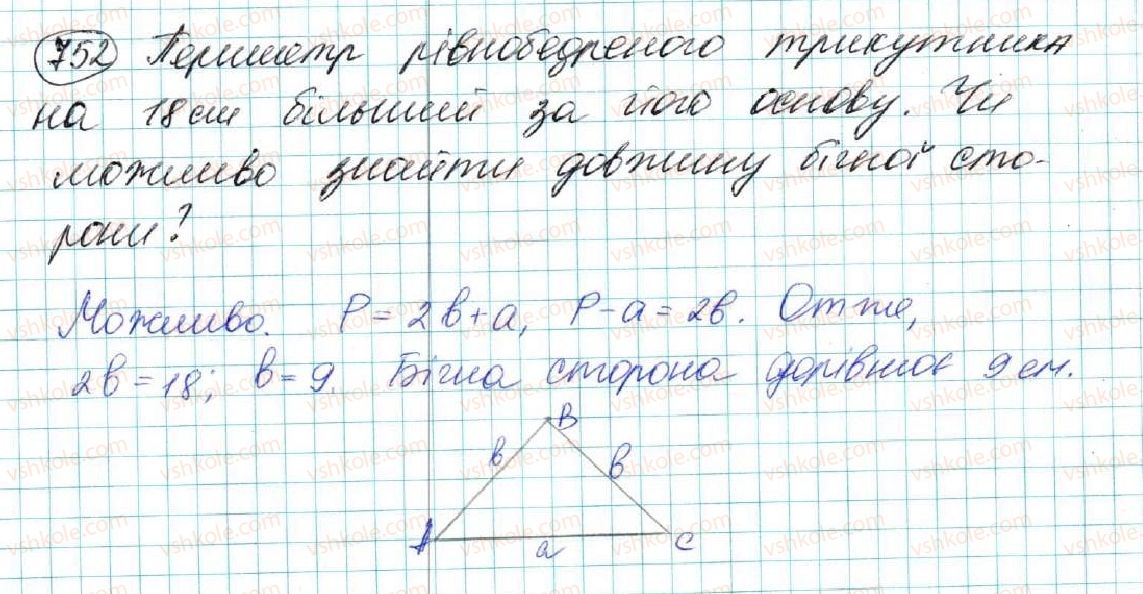 752 Периметр рівнобедреного трикутника
на 18 см більший за його основу. Чи
можливо знайти довжину бічної сто-
рони?
Можливо. P = 2b + a, P - a = 2b. Отже,
2b = 18; b = 9. Бічна сторона дорівнює 9 см.
B
b b
A a C
vshkole.com